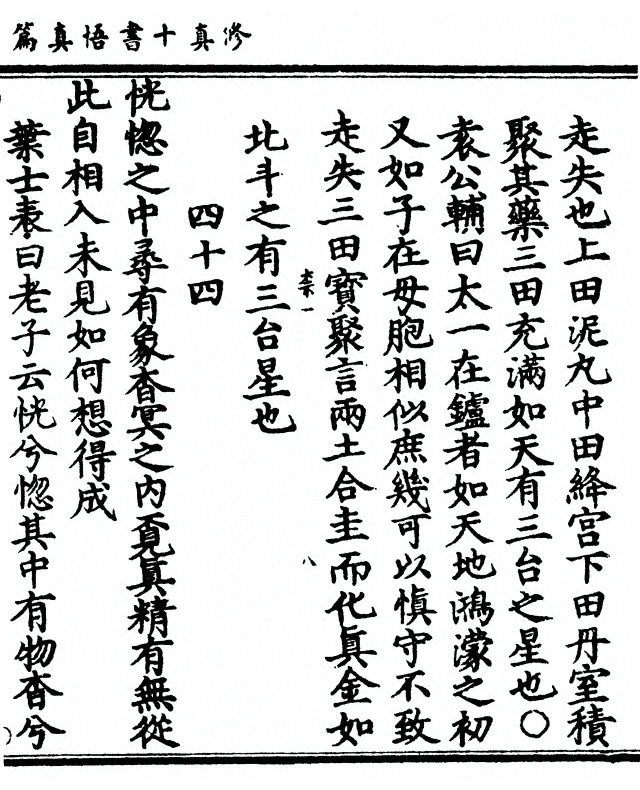 修真十書悟真篇
走失也上田泥丸中田絳宮下田丹室積
聚其藥三田充滿如天有三台之星也〇
袁公輔曰太一在鑪者如天地鴻濛之初
又如子在母胞相似庶幾可以慎守不致
走失三田寶聚言兩土合圭而化真金如
北斗之有三台星也
四十四
恍惚之中尋有象杳冥之內覓真精有無從
此自相入未見如何想得成
葉士表曰老子云恍兮惚其中有物杳兮